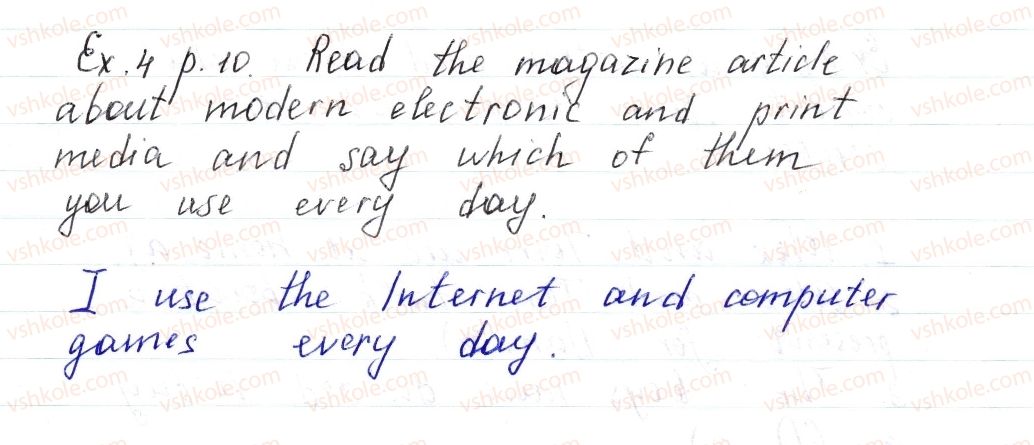 Ex. 4 p. 10. Read the magazine article
about modern electronic and print
media and say which of them
you use every day.
I use the Internet and computer
games every day.